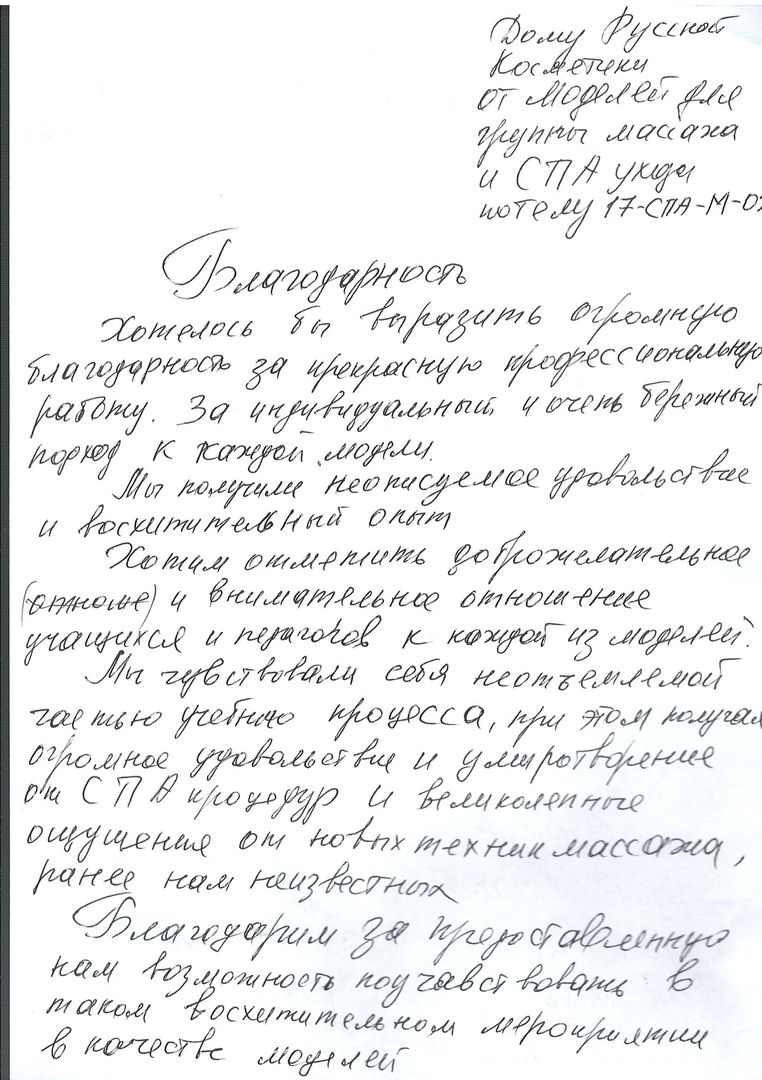 Дому Русской
Косметики
от моделей для
группы массажа
и СПА ухода
по телу 17-СПА-М-02
Благодарность
Хотелось бы выразить огромную
благодарность за прекрасную профессиональную
работу. За индивидуальный и очень бережный
подход к каждой модели.
Мы получили неописуемое удовольствие
и восхитительный опыт
Хотим отметить доброжелательное
(отноше) и внимательное отношение
учащихся и педагогов к каждой из моделей.
Мы чувствовали себя неотъемлемой
частью учебного процесса, при этом получая
огромное удовольствие и умиротворение
от СПА процедур и великолепные
ощущения от новых техник массажа,
ранее нам неизвестных
Благодарим за предоставленную
нам возможность поучавствовать в
таком восхитительном мероприятии
в качестве моделей